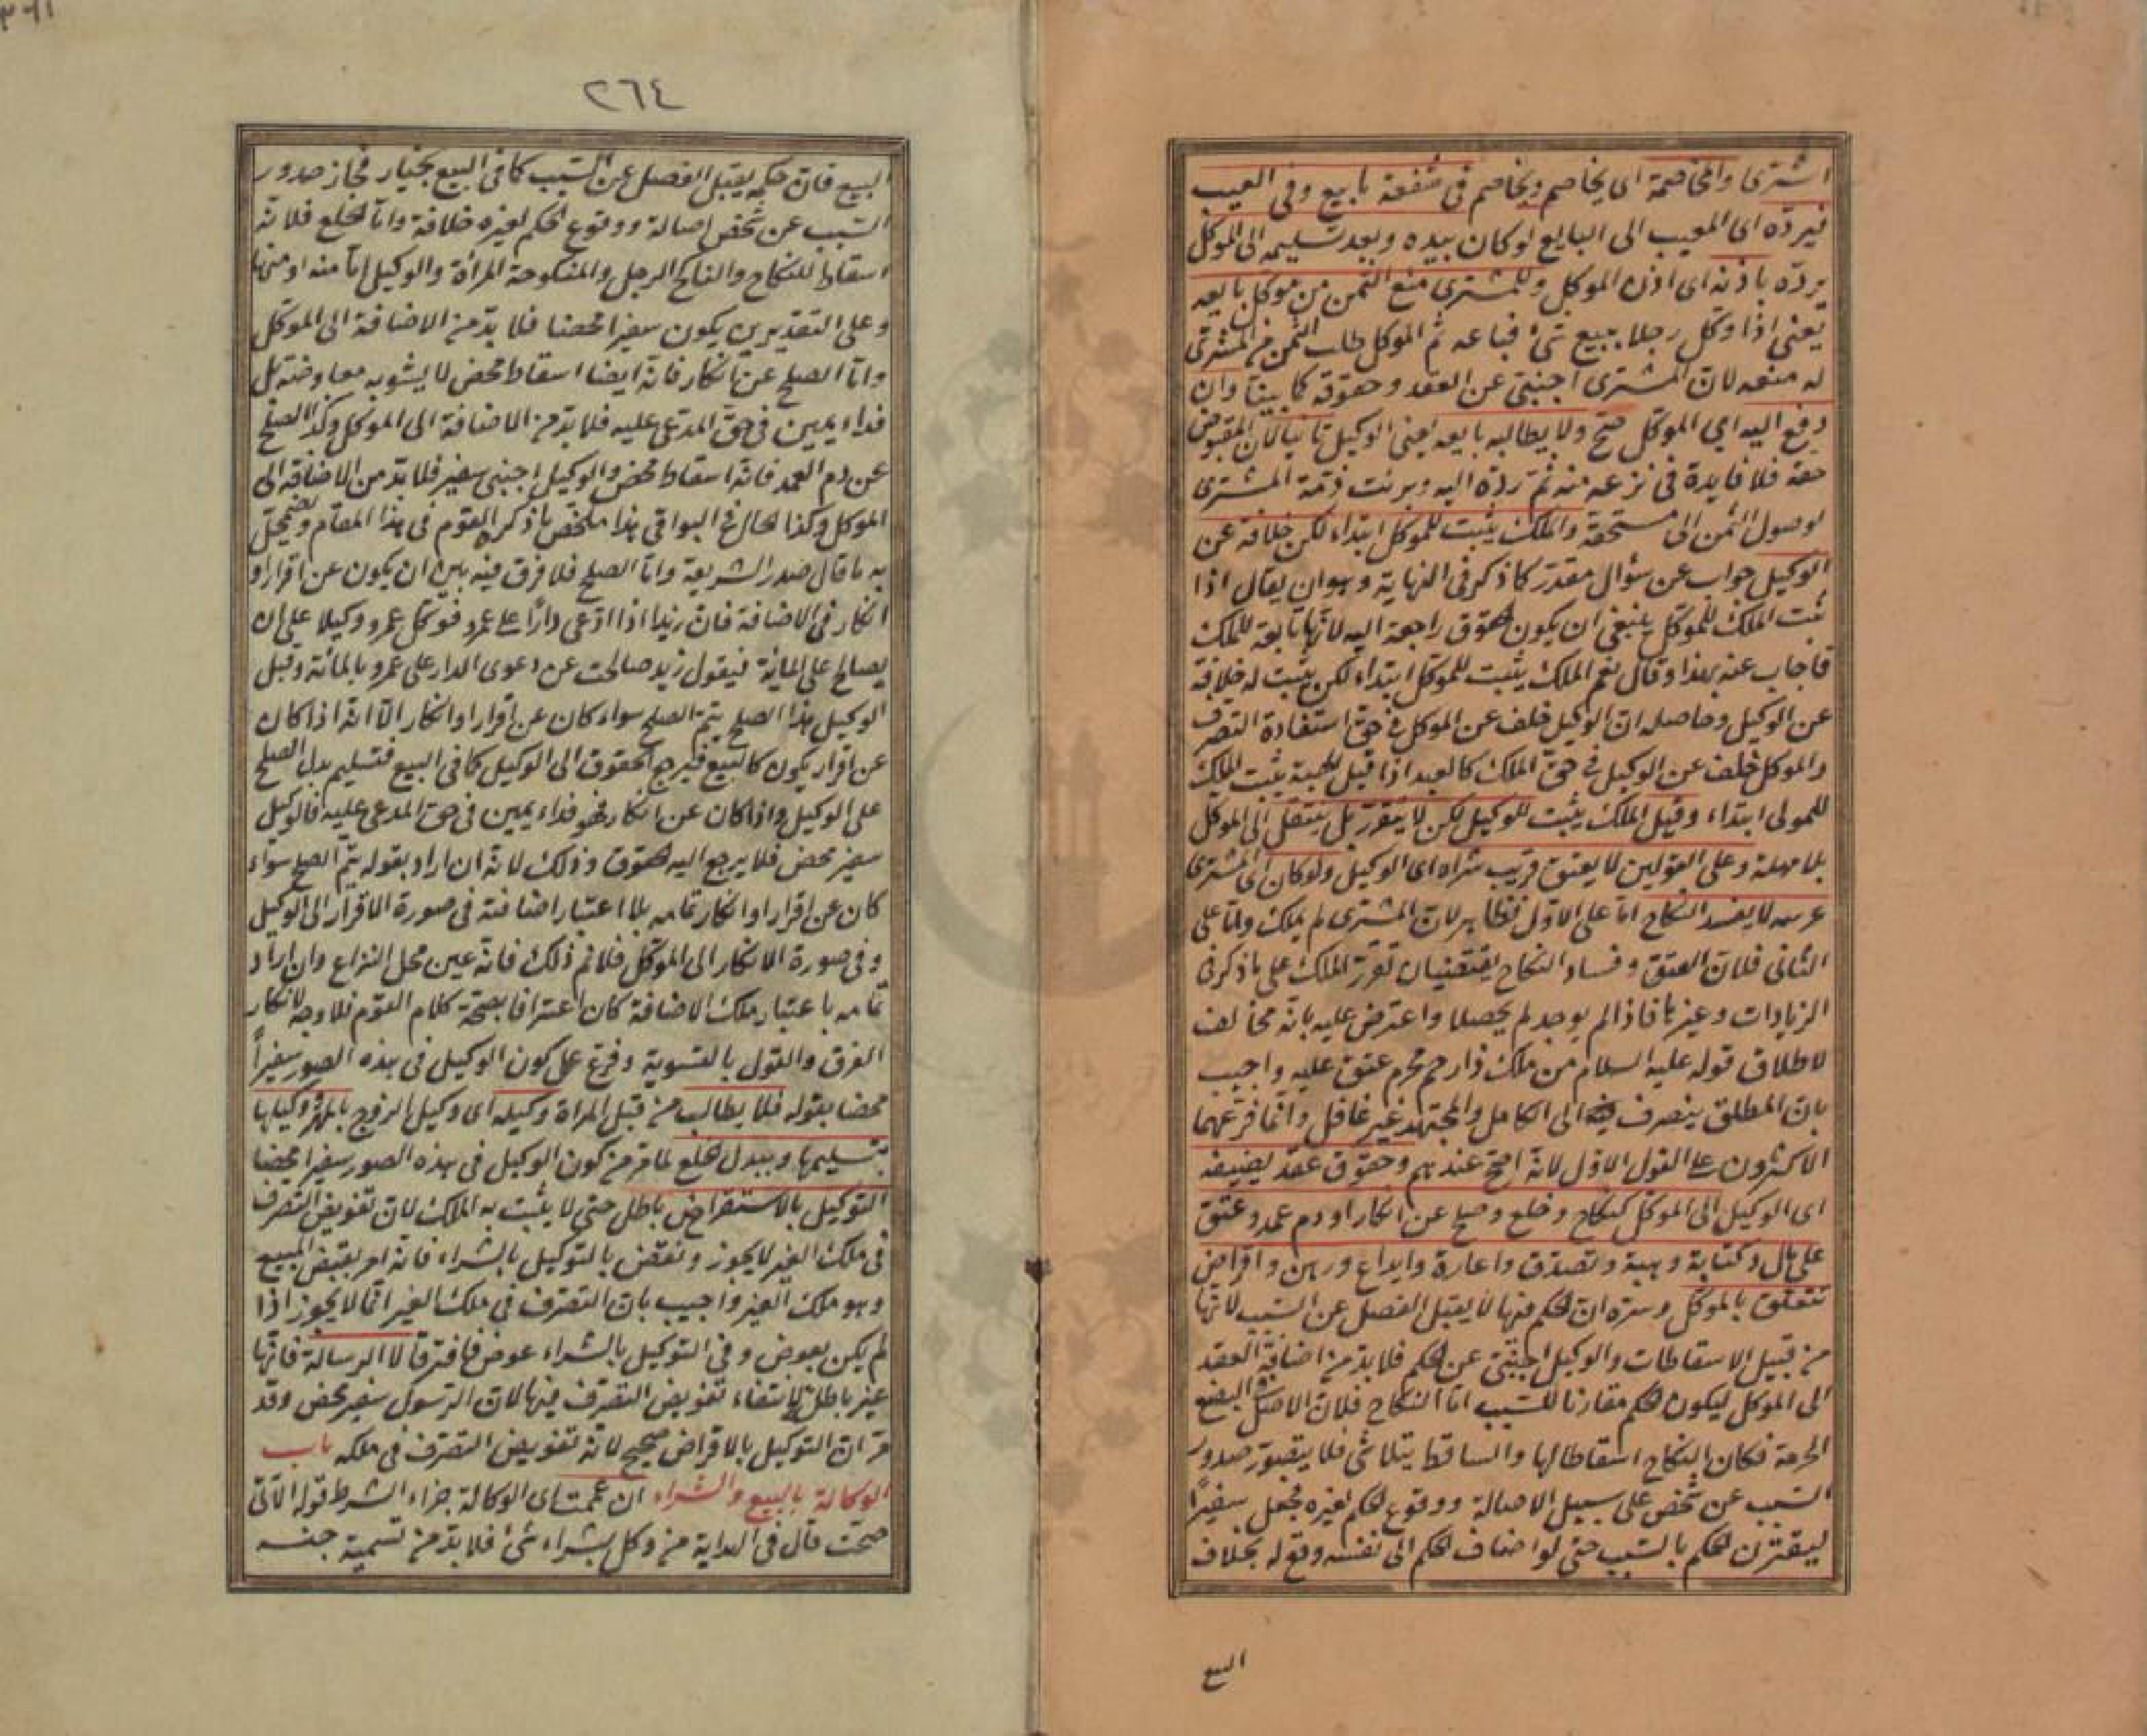 اشترى والمخاصمة اى يخاصم ويخاصم فى شفعة ما بيع وفى العيب
فيردّه اى المعيب الى البايع لو كان بيده وبعد تسليمه الى الموكل
يردّه باذنه اى اذن الموكل وللمشترى منع الثمن من موكل بايعه
يعنى اذا وكل رجلا ببيع شئ فباعه ثم الموكل طلب الثمن من المشترى
له منعه لان المشترى اجنبىّ عن العقد وحقوقه كما بيّنا وان
دفع اليه اى الموكل صح ولا يطالبه بايعه يعنى الوكيل ثانيا لان المقبوض
حقه فلا فايدة فى نزعه منه ثم ردّه اليه وبرئت ذمّة المشترى
لوصول الثمن الى مستحقه والملك يثبت للموكل ابتداء لكن خلافة عن
الوكيل جواب عن سؤال مقدّر كما ذكر فى النهاية وهو ان يقال اذا
ثبت الملك للموكل ينبغى ان يكون الحقوق راجعة اليه لانها تابعة للملك
فاجاب عنه بهذا وقال نعم الملك يثبت للموكل ابتداء لكن يثبت له خلافة
عن الوكيل وحاصله ان الوكيل خلف عن الموكل فى حق استفادة التصرف
والموكل خلف عن الوكيل فى حق الملك كالعبد اذا قبل الهبة يثبت الملك
للمولى ابتداء وقيل الملك يثبت للوكيل لكن لا يتقرر بل ينتقل الى الموكل
بلا مهلة وعلى القولين لا يعتق قريب شراه اى الوكيل ولو كان اى المشترى
عرسه لا يفسد النكاح امّا على الاوّل فظاهر لان المشترى لم يملك وامّا على
الثانى فلان العتق وفساد النكاح يقتضيان تقرر الملك على ما ذكر فى
الزيادات وغيرها فاذا لم يوجد لم يحصلا واعترض عليه بانّه مخالف
لاطلاق قوله عليه السلام من ملك ذا رحم محرم عتق عليه واجيب
بان المطلق ينصرف الى الكامل والمجتهد غير غافل وانّما فرّعهما
الاكثرون على القول الاوّل لانّه اصحّ عندهم وحقوق عقد يضيفه
اى الوكيل الى الموكل كنكاح وخلع وصلح عن انكار او دم عمد وعتق
على مال وكتابة وهبة وتصدّق واعارة وايداع ورهن واقراض
تتعلق بالموكل وسرّه ان الحكم فيها لا يقبل الفصل عن السّبب لانها
من قبيل الاسقاطات والوكيل اجنبىّ عن الحكم فلا بدّ من اضافة العقد
الى الموكل ليكون الحكم مقارنا للسّبب امّا النكاح فلان الاصل فى البضع
الحرمة فكان النكاح اسقاطا لها والساقط يتلاشى فلا يتصوّر صدور
السّبب عن شخص على سبيل الاصالة ووقوع الحكم لغيره فجعل سفيرًا
ليقترن الحكم بالسّبب حتى لو اضاف الحكم الى نفسه وقع له بخلاف
البيع
٢٦٤
البيع فان حكمه يقبل الفصل عن السّبب كما فى البيع بخيار فجاز صدور
السّبب عن شخص اصالة ووقوع الحكم لغيره خلافة وامّا الخلع فلانّه
اسقاط للنكاح والناكح الرجل والمنكوحة المرأة والوكيل امّا منه او منها
وعلى التقديرين يكون سفيرا محضا فلا بدّ من الاضافة الى الموكل
وامّا الصلح عن انكار فانّه ايضا اسقاط محض لا يشوبه معاوضة بل
فداء يمين فى حق المدّعى عليه فلا بدّ من الاضافة الى الموكل وكذا الصلح
عن دم العمد فانّه اسقاط محض والوكيل اجنبى سفير فلا بدّ من الاضافة الى
الموكل وكذا الحال فى البواقى هذا ملخّص ما ذكر القوم فى هذا المقام ويضمحلّ
به ما قال صدر الشريعة وامّا الصلح فلا فرق فيه بين ان يكون عن اقرار او
انكار فى الاضافة فان زيدا اذا ادّعى دارًا على عمرو فوكل عمرو وكيلا على ان
يصالح على المائة فيقول زيد صالحت عن دعوى الدار على عمرو بالمائة وقبل
الوكيل هذا الصلح يتم الصلح سواء كان عن اقرار او انكار الّا انّه اذا كان
عن اقرار يكون كالبيع فيرجع الحقوق الى الوكيل كما فى البيع فتسليم بدل الصلح
على الوكيل واذا كان عن انكار فهو فداء يمين فى حق المدعى عليه فالوكيل
سفير محض فلا يرجع اليه الحقوق وذلك لانّه ان اراد بقوله يتمّ الصلح سواء
كان عن اقرار او انكار تمامه بلا اعتبار اضافته فى صورة الاقرار الى الوكيل
وفى صورة الانكار الى الموكل فلا نم ذلك فانّه عين محل النزاع وان اراد
تمامه باعتبار ملك الاضافة كان اعترافا بصحّة كلام القوم فلا وجه لانكار
الفرق والقول بالتسوية وفرّع على كون الوكيل فى هذه الصور سفيراً
محضا بقوله فلا يطالب من قبل المرأة وكيله اى وكيل الزوج بالمهر ووكيلها
بتسليمها وببدل الخلع لما مرّ من كون الوكيل فى هذه الصور سفيرا محضا
التوكيل بالاستقراض باطل حتى لا يثبت به الملك لان تفويض التصرف
فى ملك الغير لا يجوز ونقض بالتوكيل بالشراء فانّه امر بقبض المبيع
وهو ملك الغير واجيب بان التصرّف فى ملك الغير انّما لا يجوز اذا
لم يكن بعوض وفى التوكيل بالشراء عوض فافترقا لا الرسالة فانّها
غير باطلة لانتفاء تفويض التصرّف فيها لان الرسول سفير محض وقد
مرّ ان التوكيل بالاقراض صحيح لانّه تفويض التصرّف فى ملكه باب
الوكالة بالبيع والشراء ان عمت اى الوكالة جزاء الشرط قوله الآتى
صحّت قال فى الهداية من وكل بشراء شئ فلا بدّ من تسمية جنسه